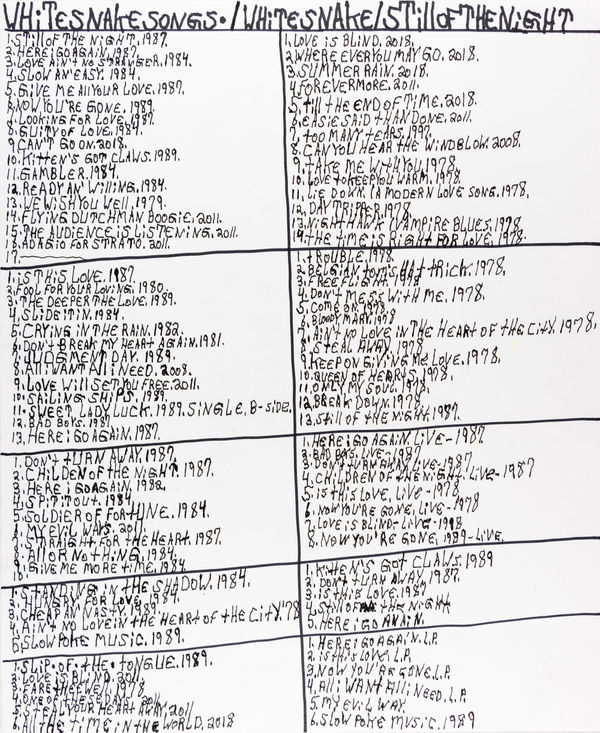 WHiTESNAKE SONGS./WHiTESNAKE/STillOFTHENiGHT
1. STillOFTHENiGHT.1987.
2. HEREiGOAGAiN.1987.
3. LOVE AiN'T NO STRANGER.1984.
4. SLOW AN'EASY. 1984.
5. GiVE ME All YOUR LOVE.1987.
6. NOW YOU'RE GONE. 1989.
7. LOOKiNG FOR LOVE.1987.
8. GUiLTY OF LOVE.1984.
9 CAN'T GO ON.2018.
10. KiTTEN'S GOT CLAWS.1989.
11. GAMBLER.1984.
12. READY AN' WilliNG.1984.
13. WE WiSH YOU WEll.1979.
14. FLYiNG DUTCHMAN BOOGiE.2011.
15. THE AUDiENCE iS LiSTENiNG.2011.
16. ADAGiO FOR STRATO.2011.
17.
1. iS THiS LOVE.1987
2. FOOL FOR YOUR LOViNG.1980.
3. THE DEEPER THE LOVE.1989.
4. SLiDE iT iN.1984.
5. CRYiNG iN THE RAiN.1982.
6. DON'T BREAK MY HEART AGAiN.1981.
7. JUDGMENT DAY.1989.
8. All i WANT All i NEED.2008.
9. LOVE Will SET YOU FREE.2011.
10. SAiLiNG SHiPS.1989.
11. SWEET LADY LUCK.1989.SiNGLE, B-SiDE.
12. BAD BOYS.1987.
13. HERE i GO AGAiN.1987.
1. DON'T tURN AWAY.1987.
2. CHiLDEN OF THE NiGHT.1987.
3. HERE i GO AGAiN.1982.
4. SPiT iT OUT.1984.
5. SOLDiER OF FORtUNE.1984.
6. MY EViL WAYS.2011.
7. STRAiGHT FOR THE HEART.1987.
8. All OR NOTHiNG.1984.
9. GiVE ME MORE TiME.1984.
10.
1. STANDiNG iN THE SHADOW.1984.
2. HUNGRY FOR LOVE.1984.
3. CHEAP AN' NASTY.1984.
4. AiN'T NO LOVE iN THE HEART OF tHE CiTY.'78
5. SLOW POKE MUSiC.1989.
1. SLiP.OF.tHE.tONGUE.1989.
2. LOVE iS BLiND.2011.
3. FARE THEE WEll.1978
4. ONE OF THESE DAYS.2011
5. STEAL YOUR HEART AWAY 2011
6. All THE TiME iN THE WORLD.2018
1. LOVE iS BLiND.2018.
2. WHERE EVER YOU MAY GO.2018.
3. SUMMER RAiN.2018.
4. FOREVERMORE.2011.
5. till tHE END OF TiME.2018.
6. EASiE SAiD tHAN DONE.2011.
7. tOO MANY tEARS.1997.
8. CAN YOU HEAR THE WiND BLOW.2008.
9. tAKE ME WitH YOU.1978.
10. LOVE tO KEEP YOU WARM.1978.
11. LiE DOWN.(A MODERN LOVE SONG.1978.
12. DAY TRiPPER.1978
13. NiGHT HAWK (VAMPiRE BLUES.1978
14. THE TiME iS RiGHT FOR LOVE.1978.
1. tROUBLE.1978.
2. BELGiAN tOM'S HAt tRiCK.1978.
3. FREE FLiGHT.1978.
4. DON't MESS WitH ME.1978.
5. COME ON.1978.
6. BLOODY MARY.1978
7. AiN't NO LOVE iN THE HEART OF tHE CitY.1978.
8. StEAL AWAY.1978
9. KEEP ON GiViNG ME LOVE.1978.
10. QUEEN OF HEARTS.1978.
11. ONLY MY SOUL.1978.
12. BREAK DOWN.1978.
13. Still OF tHE NiGHt.1987.
1. HERE i GO AGAiN.LiVE-1987
2. BAD BOYS.LiVE-1987.
3. DON't tURN AWAY.LiVE-1987.
4. CHiLDREN OF tHE NiGHT.LiVE-1987
5. iS tHiS LOVE.LiVE-1978
6. NOW YOU'RE GONE.LiVE-1978
7. LOVE iS BLiND-LiVE-1918
8. NOW YOU'RE GONE.1989-LiVE.
1. KiTTEN'S GOt CLAWS.1989
2. DON't tURN AWAY.1987.
3. iS tHiS LOVE.1987
4. Still OF tHE NiGHt
5. HERE i GO AGAiN.
1. HERE i GO AGAiN.L.P.
2. iS tHiS LOVE L.P.
3. NOW YOU'RE GONE.L.P.
4. All i WANT All i NEED.L.P.
5. MY EViL WAY.
6. SLOW POKE MVSiC.1989